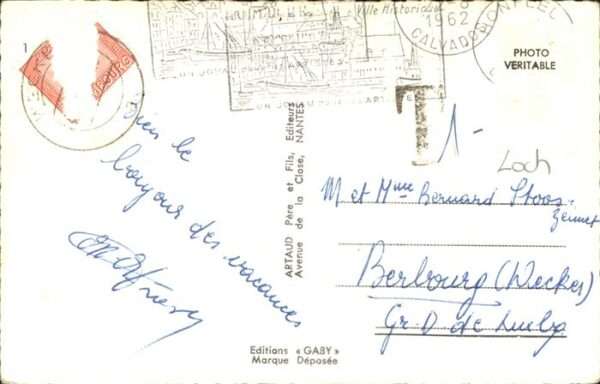 1
Ville Historique
1962
HONFLEUR
CALVADOS
PHOTO
VERITABLE
T
1-
bien le
bonjour des vacances
ARTAUD Père et Fils, Editeurs
Avenue de la Close, NANTES
Loch
M et Mme Bernard Stoos-
Zennet
Berbourg (Wecker)
Gr. D de Luxbg
Editions « GABY »
Marque Déposée